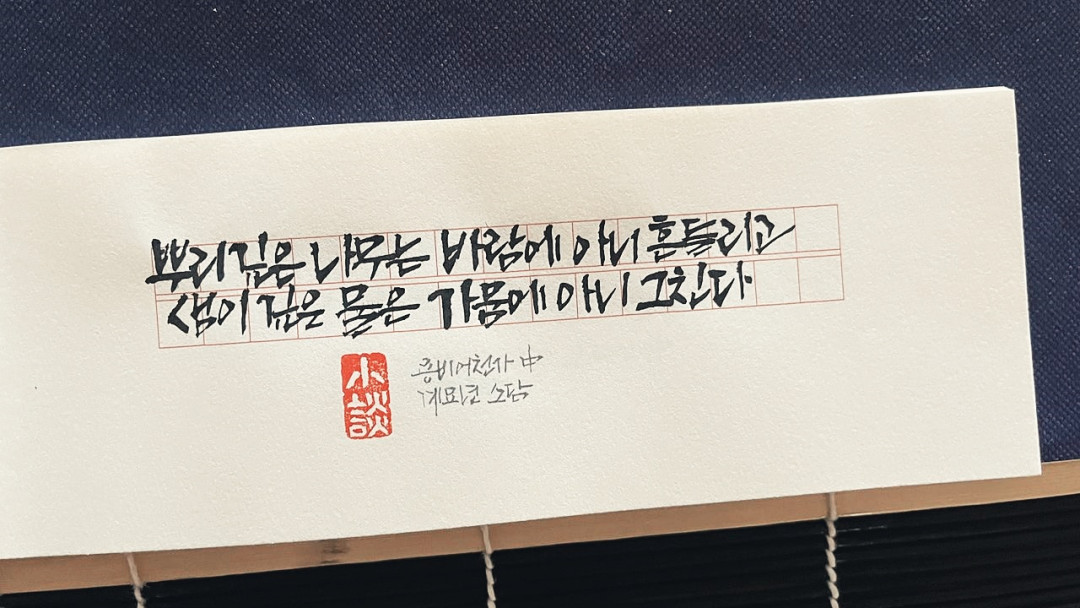 뿌리깊은 나무는 바람에 아니 흔들리고
샘이 깊은 물은 가뭄에 아니 그친다
小談
용비어천가 中
계묘년 소담